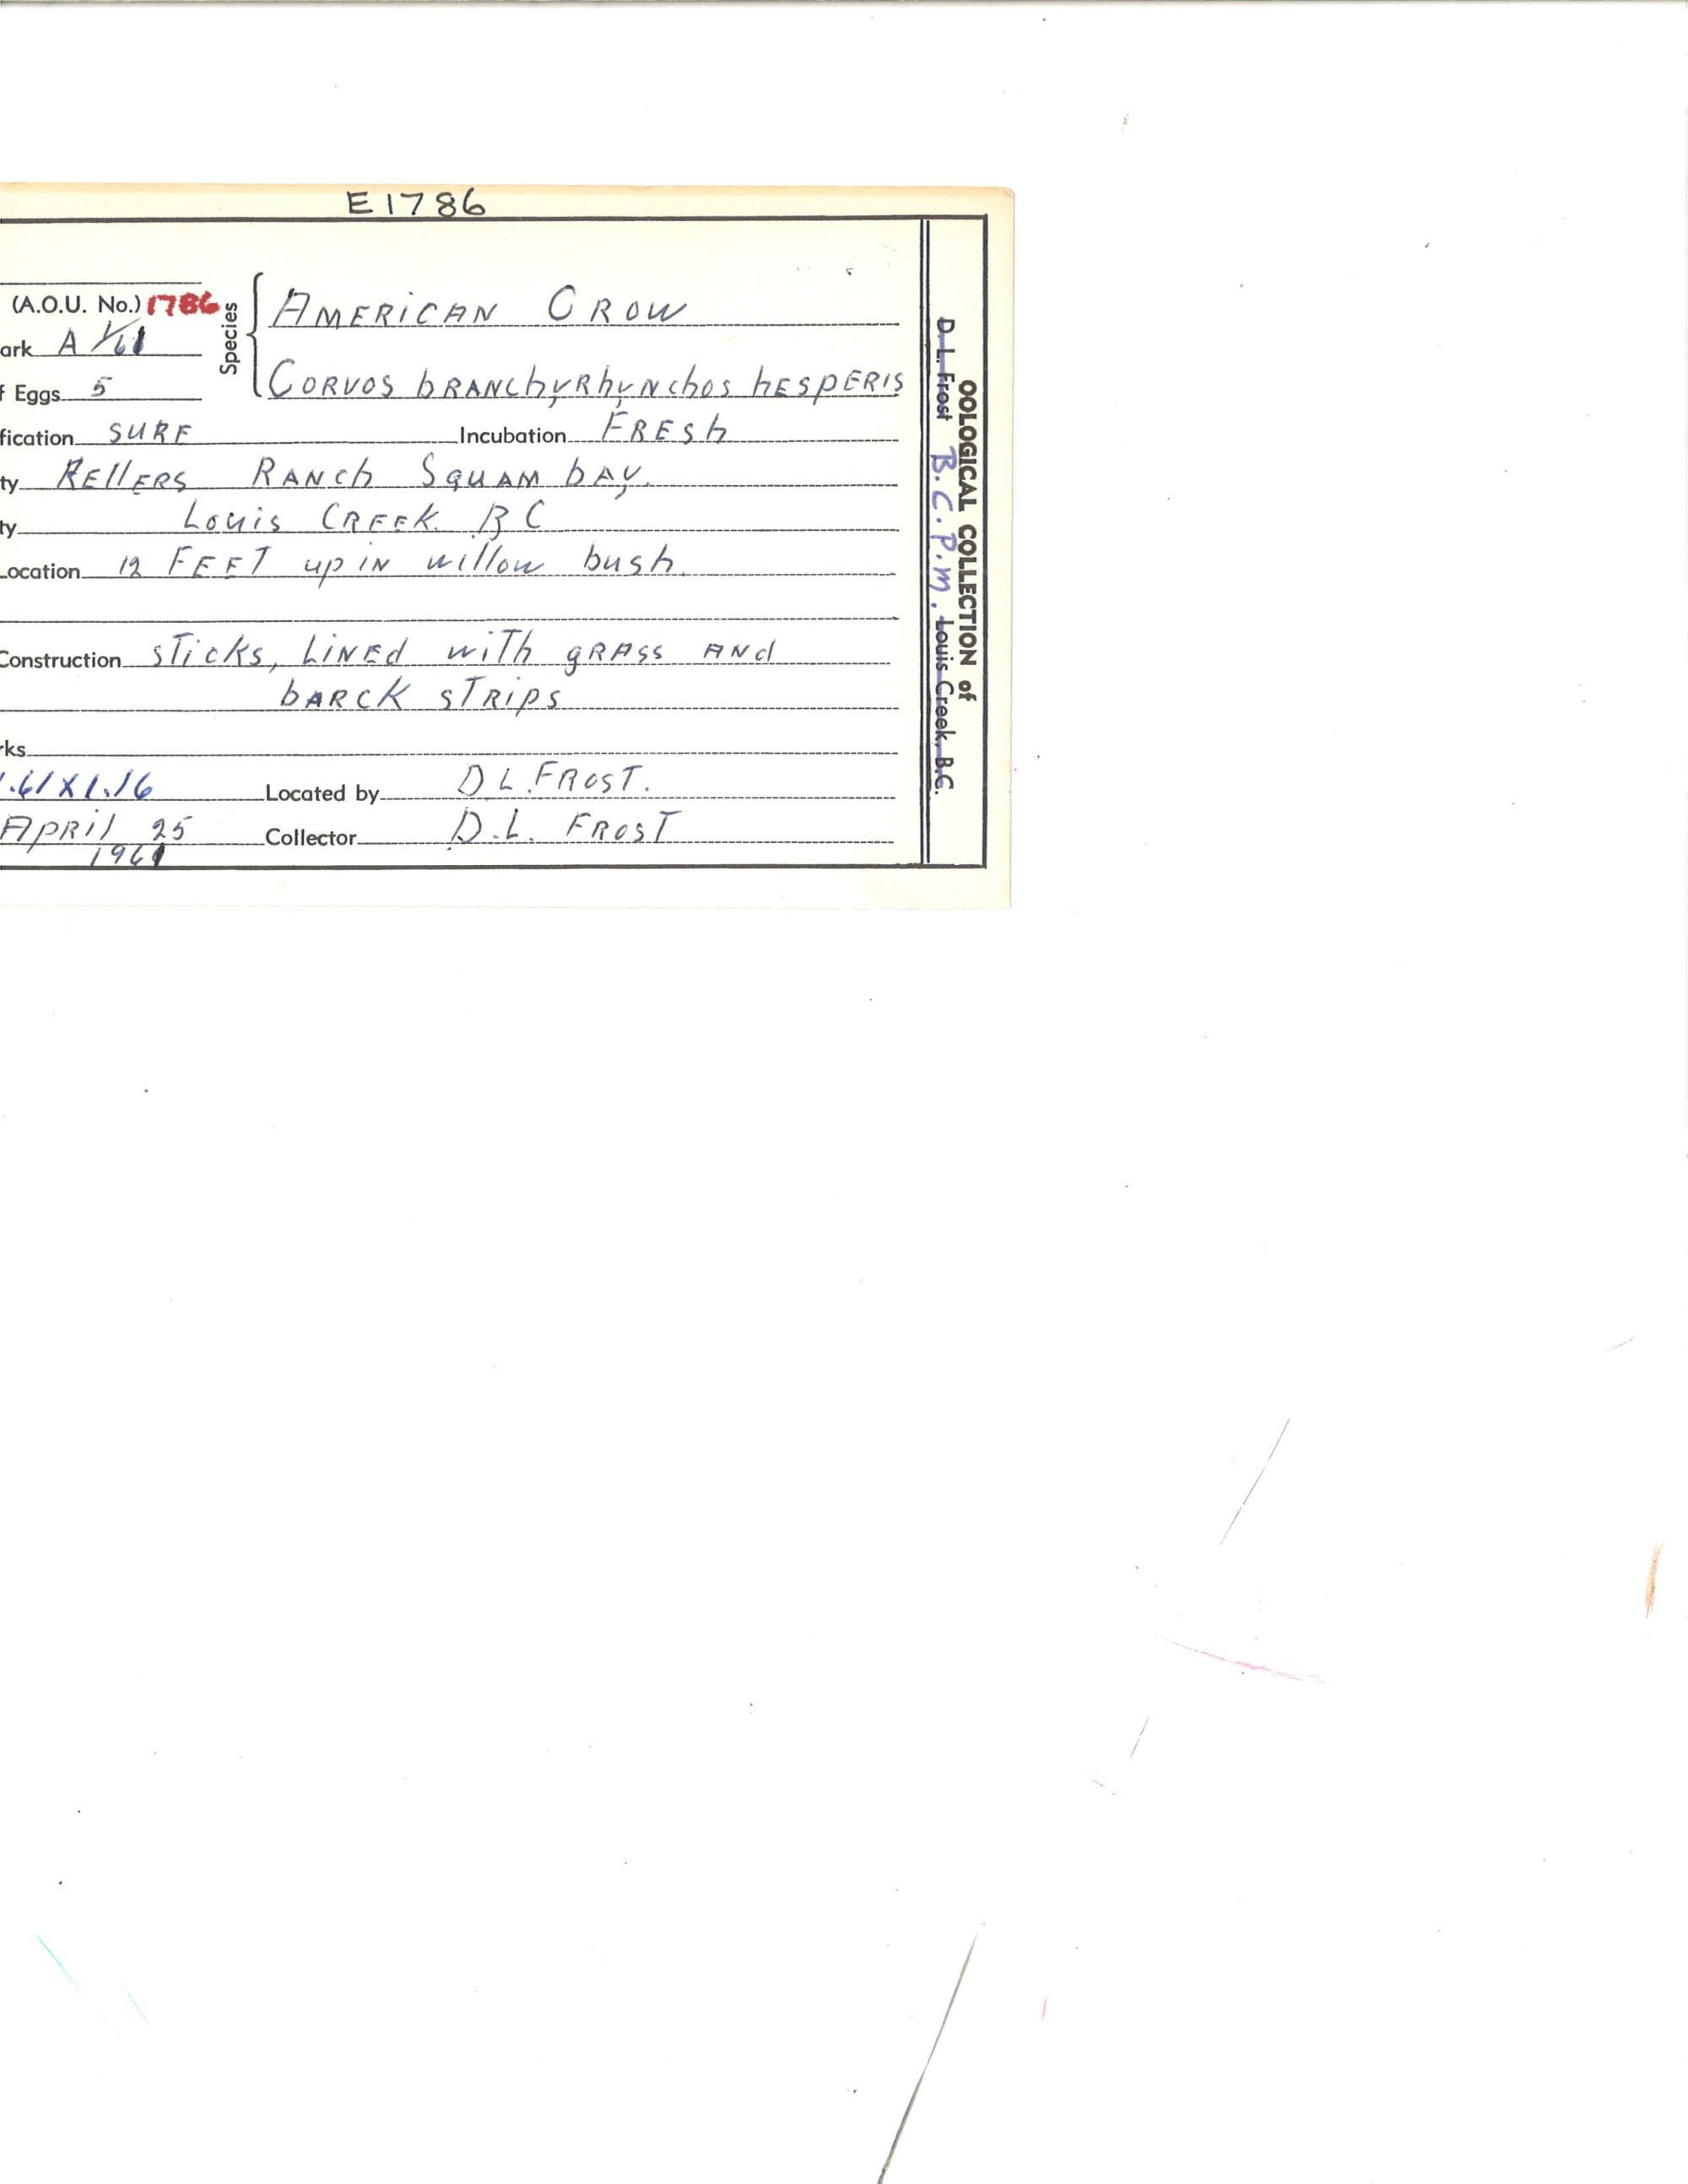 E1786
(A.O.U. No.) 1786
Species
AMERICAN CROW
ark A 1/61
CORVOS bRANChyRhyNchos hESPERIS
f Eggs 5
fication SURE Incubation FRESh
ty REllERS RANch SquAM bAy.
ty Louis CREEK. BC
Location 12 FEET up iN willow bush.
Construction sTicks, LiNEd wiTh gRASS ANd
bARCK sTRips
rks
.61X1.16 Located by D L. FROST.
APRil 25 Collector D.L. FROST
1961
OOLOGICAL COLLECTION of
D. L. Frost B.C.P.M. Louis Creek, B.C.